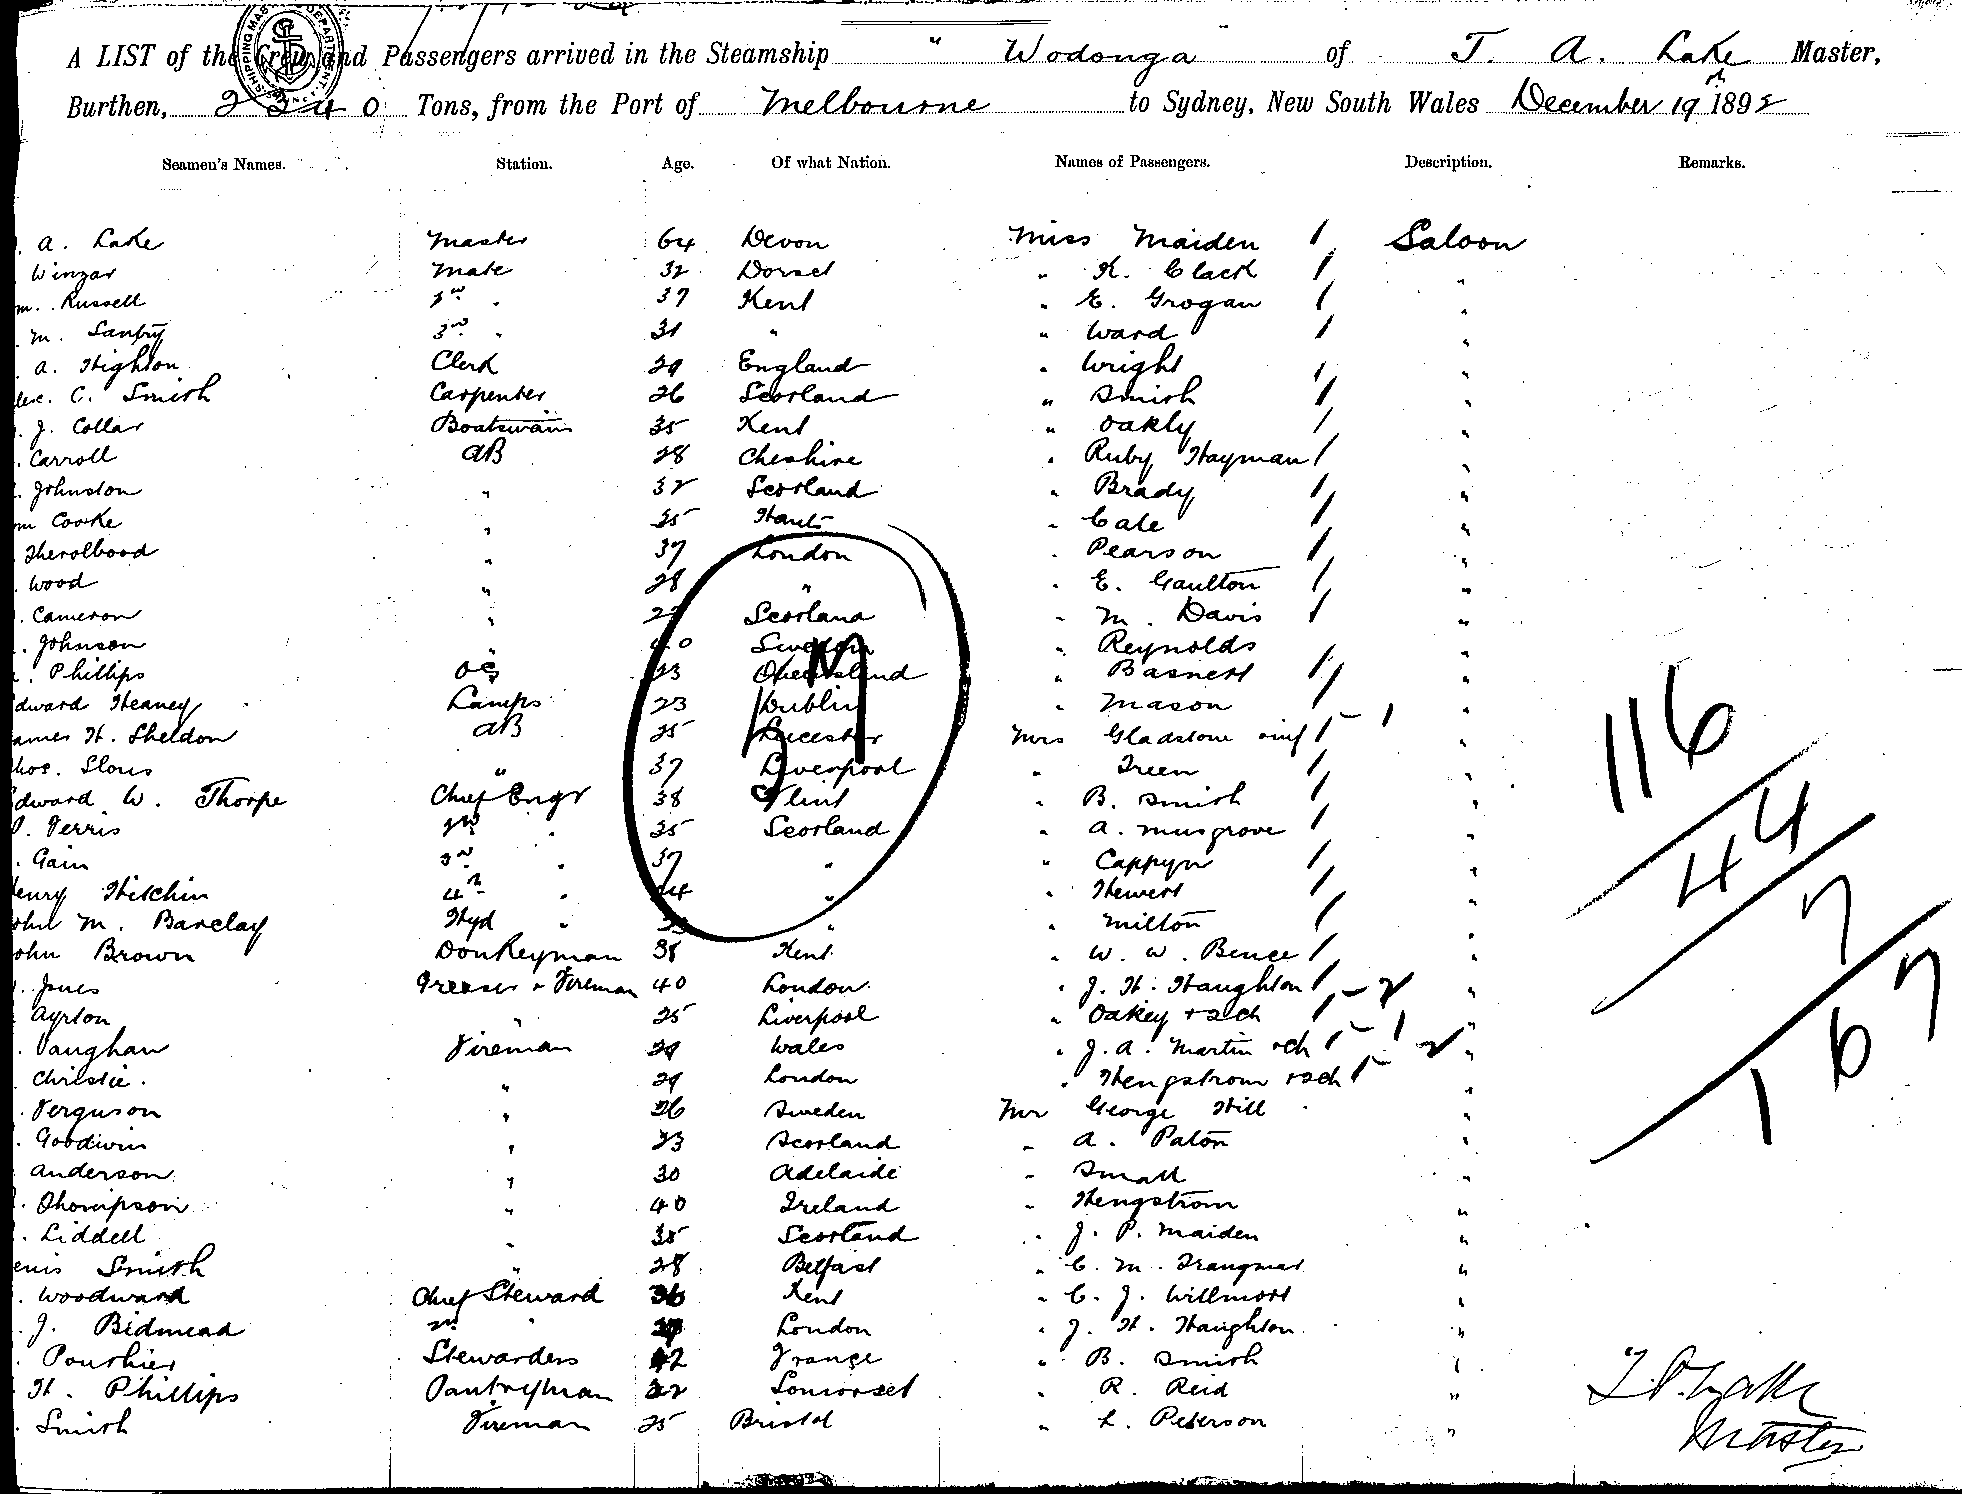 A LIST of the Crew and Passengers arrived in the Steamship " Wodonga " of T. A. Lake Master,
Burthen, 2340 Tons, from the Port of Melbourne to Sydney, New South Wales December 19th 1892
Seamen's Names. Station. Age. Of what Nation. Names of Passengers. Description. Remarks.
A. Lake Master 64 Devon Miss Maiden 1 Saloon
Winzar Mate 32 Dorset " K. Clack 1 "
m. Russell 2nd " 37 Kent " E. Grogan 1 "
M. 3rd " 31 " " Ward 1 "
A. Highton Clerk 29 England " Wright 1 "
lex. C. Smith Carpenter 26 Scotland " Smith 1 "
J. Collar Boatswain 35 Kent " Oakly 1 "
Carroll AB 28 Cheshire " Ruby Hayman 1 "
Johnston " 32 Scotland " Brady 1 "
m Cooke " 35 Hants " Cate 1 "
" 37 London " Pearson 1 "
Wood " 28 " " E. Gaulton 1 "
Cameron " Scotland " M. Davis 1 "
Johnson " 40 Sweden " Reynolds 1 "
Phillips OS 23 Queensland " Basnett 1 "
dward Heaney Lamps 23 Dublin " Mason 1 "
ames H. Sheldon AB 25 Leicester Mrs Gladstone inf 1 - 1 "
hos. " 37 Liverpool " Treen 1 "
dward W. Thorpe Chief Engr 38 Flint " B. Smith 1 "
Ferris 2nd " 35 Scotland " A. Musgrove 1 "
Gain 3rd " 37 " " 1 "
enry Hitchin 4th " 24 " " Hewett 1 "
ohn M. Barclay Hyd " " " Milton 1 "
ohn Brown Donkeyman 38 Kent " W. W. Bence 1 "
Jones Greaser & Fireman 40 London " J. H. Haughton 1 - 2 "
Ayrton " 25 Liverpool " Oakey + 2 ch 1 "
Vaughan Fireman 29 Wales " J. A. Martin + ch 1 - 1 2 "
Christie " 29 London " Hengstrom + 2 ch 1 "
Ferguson " 26 Sweden Mr George Hill "
Goodwin " 23 Scotland " A. Paton "
Anderson " 30 Adelaide " Small "
Thompson " 40 Ireland " Hengstrom "
Liddell " 35 Scotland " J. P. Maiden "
enis Smith " 28 Belfast " C. M. Trangmar "
Woodward Chief Steward 36 Kent " C. J. Willmott "
J. Bidmead 2nd " London " J. H. Haughton "
Pourhier Stewardess 42 France " B. Smith "
H. Phillips Pantryman 22 Somerset " R. Reid "
Smith Fireman 25 Bristol " L. Peterson "
57
116
44
7
167
Master